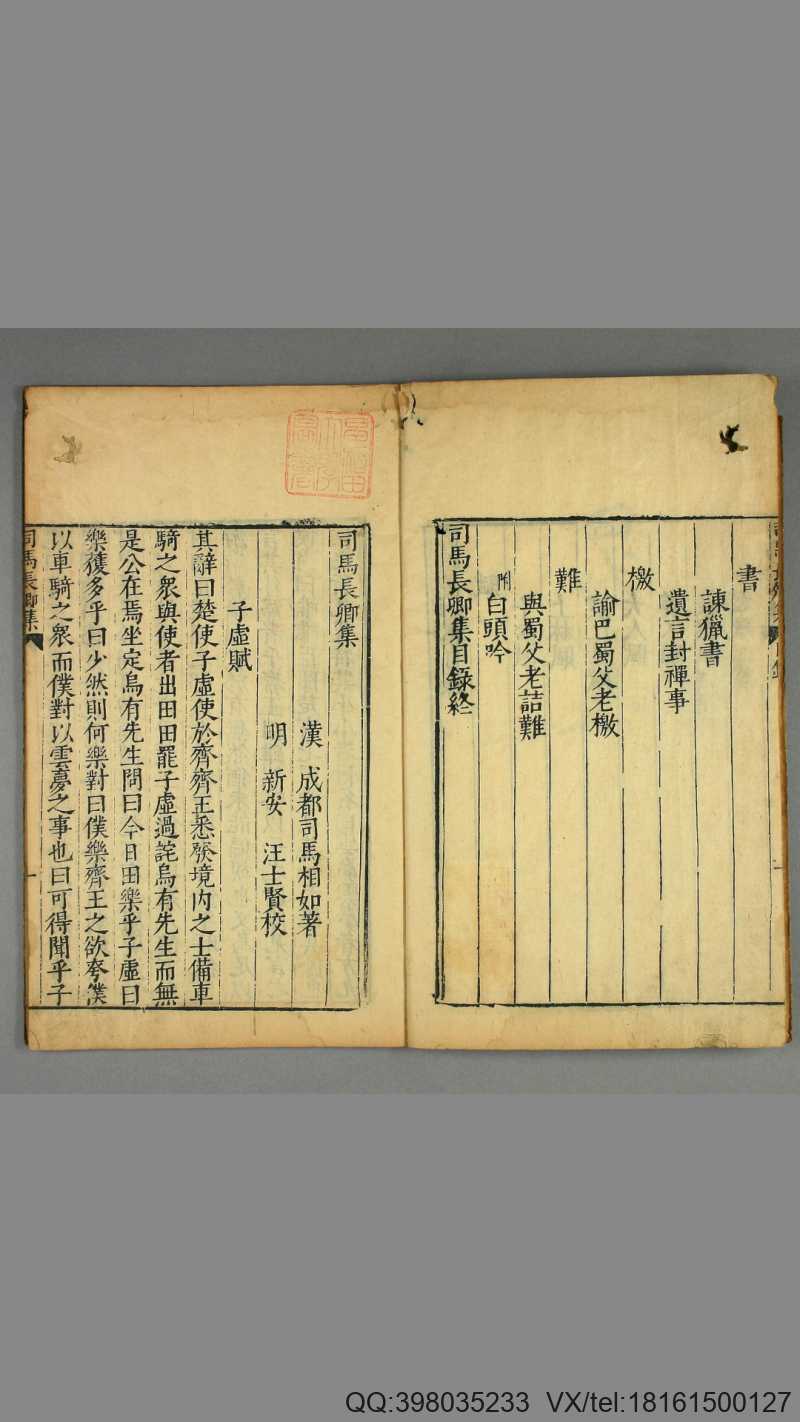 書
諫獵書
遺言封禪事
檄
諭巴蜀父老檄
難
與蜀父老詰難
附白頭吟
司馬長卿集目錄終
司馬長卿集
漢 成都司馬相如著
明 新安 汪士賢校
子虛賦
其辭曰楚使子虛使於齊齊王悉發境內之士備車
騎之衆與使者出田田罷子虛過詫烏有先生而無
是公在焉坐定烏有先生問曰今日田樂乎子虛曰
樂獲多乎曰少然則何樂對曰僕樂齊王之欲夸僕
以車騎之衆而僕對以雲夢之事也曰可得聞乎子
司馬長卿集
一
QQ:398035233 VX/tel:18161500127